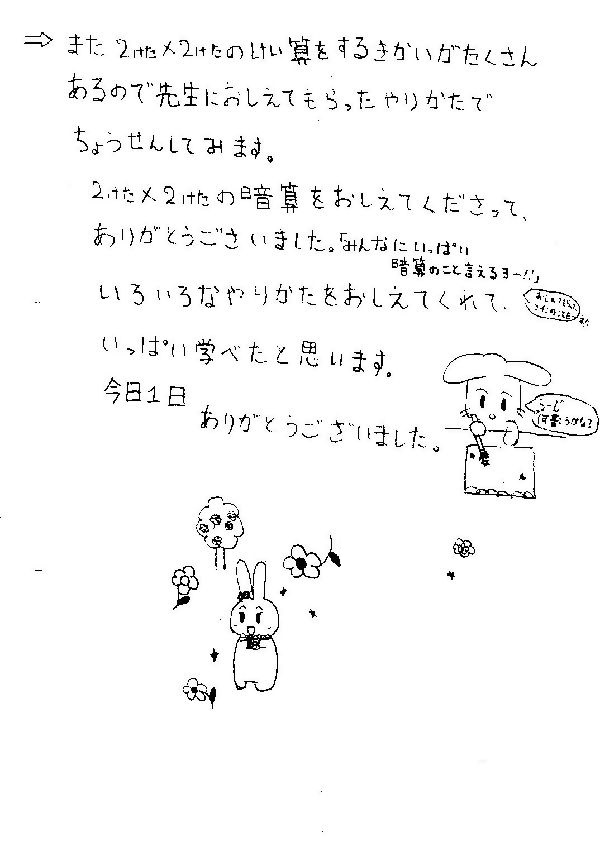 ⇒ また2けた×2けたのけい算をするきかいがたくさん
あるので先生におしえてもらったやりかたで
ちょうせんしてみます。
2けた×2けたの暗算をおしえてくださって、
ありがとうございました。「みんなにいっぱい
暗算のこと言えるヨー!!」
いろいろなやりかたをおしえてくれて、
いっぱい学べたと思います。
今日1日
ありがとうございました。
うーじ
何書こうかな?